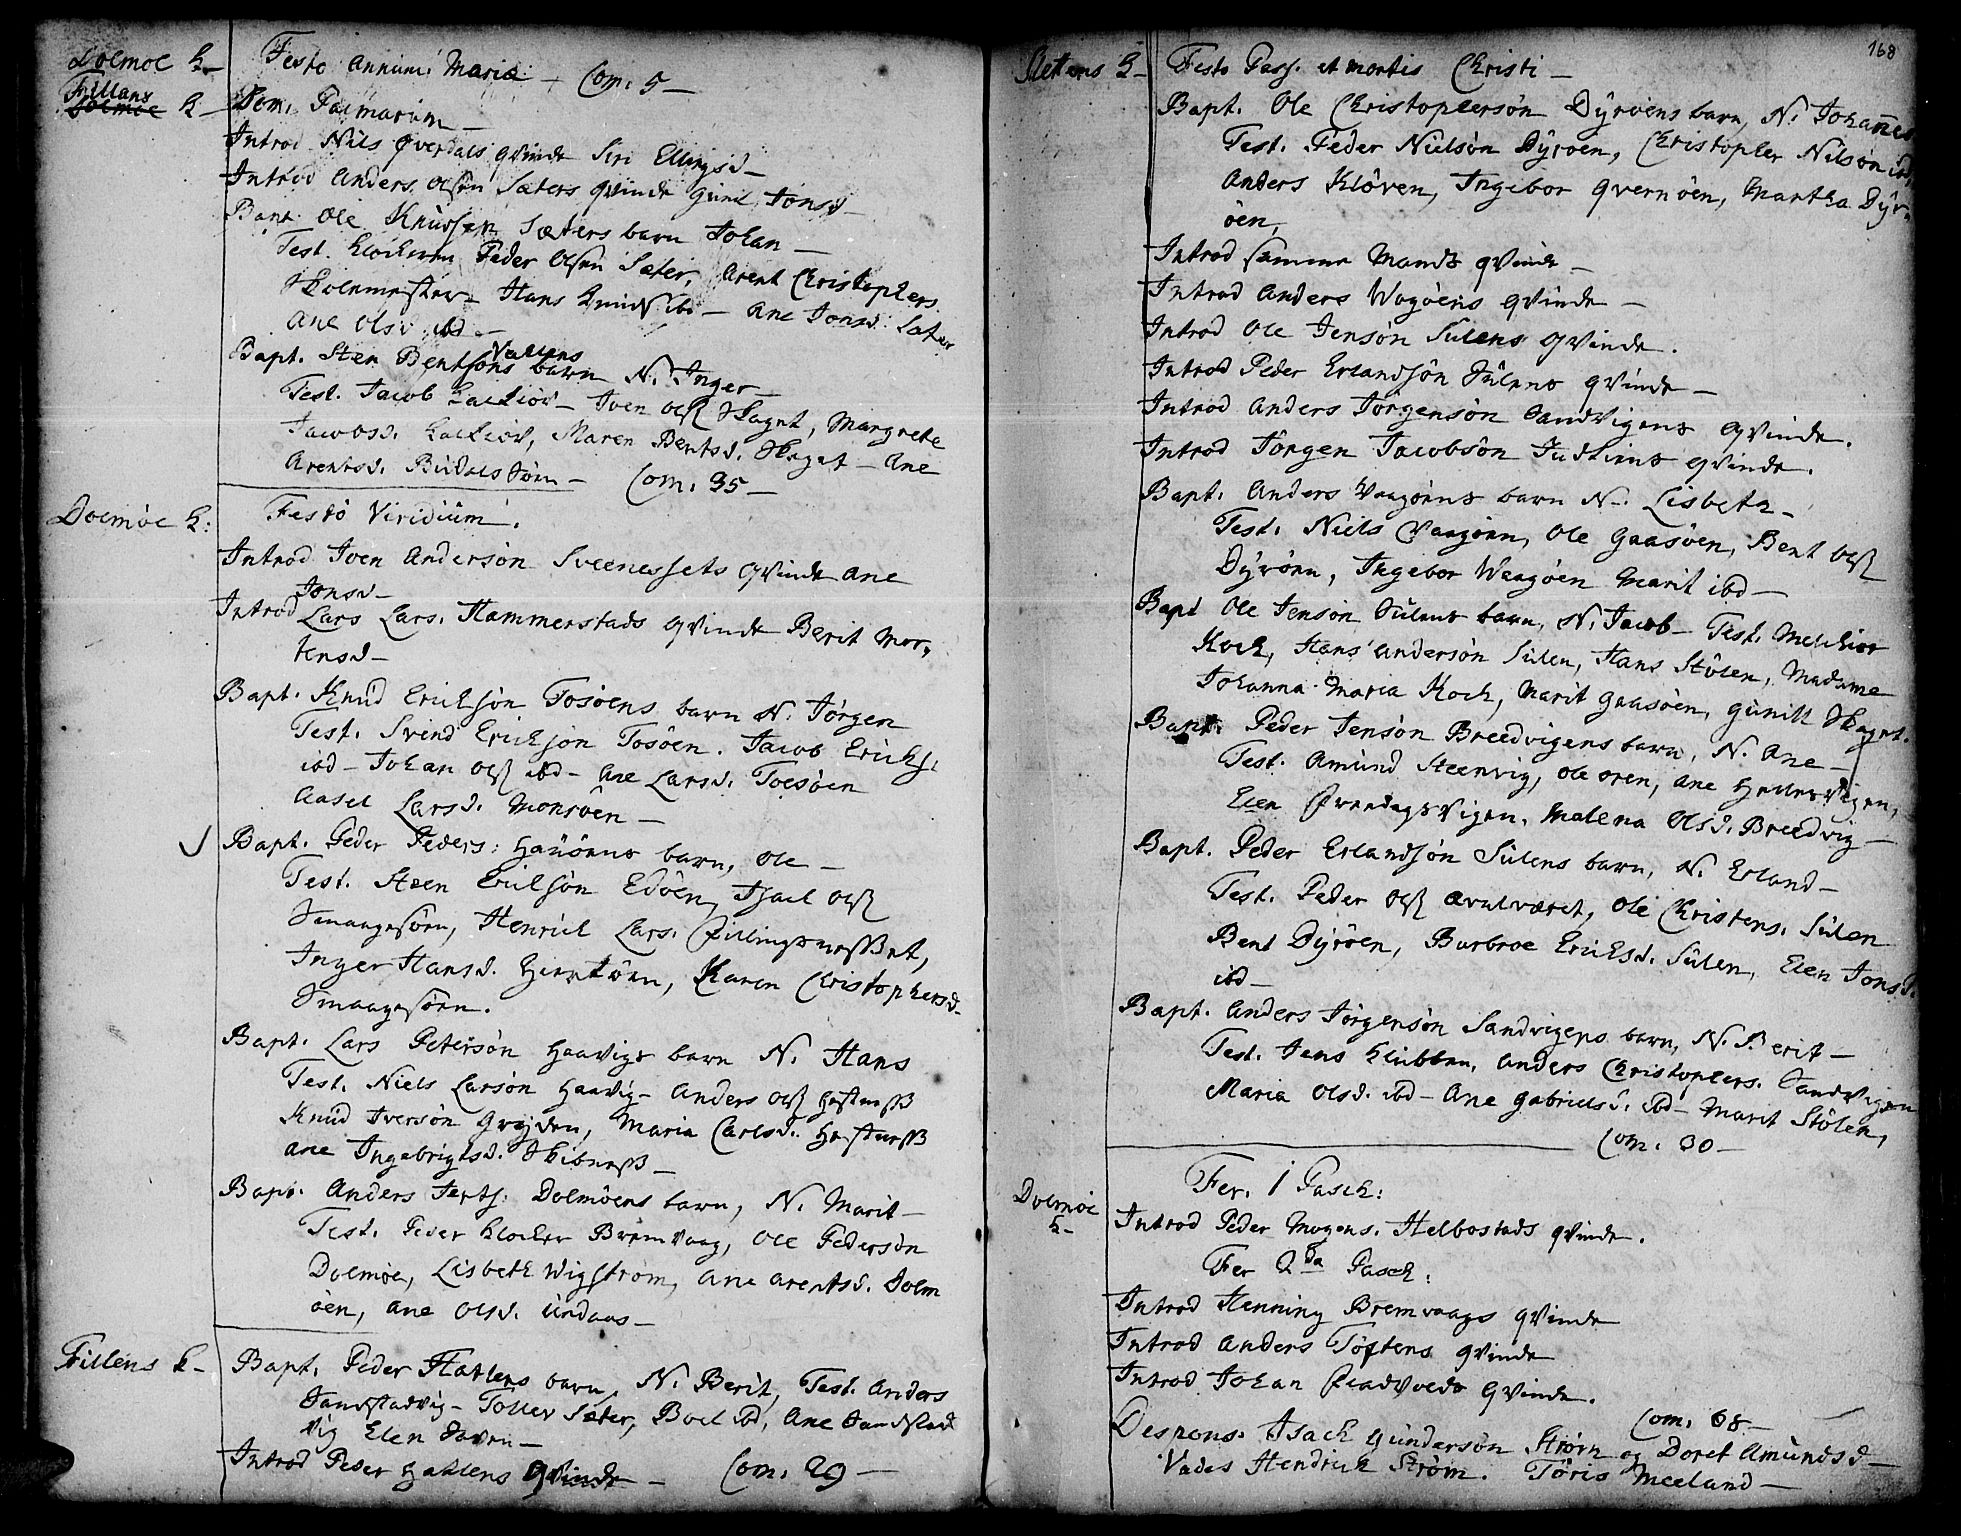 Dolmöe K- Festo Annunc: Mariæ - Com: 5 -
Fillens K- Dom: Palmarum -
Introd Nils Øverdals qvinde Siri Ellingsd -
Introd Anders Olsøn Sæters qvinde Gunil Jonsd -
Bapt Ole Knudsen Sæters barn Johan -
Test. Klockeren Peder Olsøn Sæter, Arent Christophers.
Skolemester - Hans Knuds. ibd - Ane Jonsd. Sæter
Ane Olsd ibd -
Bapt. Sten Bentsöns Vallens barn N. Inger -
Test. Jacob - Iven Ols. Skaget, Margrete
Jacobsd. Maren Bentsd. Skaget - Ane
Arentsd. - Com: 35 -
Dolmöe K: Festo Viridium.
Introd Iven Andersøn Sveenessets qvinde Ane
Jonsd -
Introd Lars Lars. Hammerstads qvinde Berit Mor-
tensd -
Bapt. Knud Ericksøn Tosöens barn N. Jörgen
Test. Svend Ericksøn Tosöen. Jacob Ericks.
ibd - Johan Ols. ibd - Ane Larsd. Toesöen
Aasel Larsd. Monsöen -
Bapt. Peder Peders: barn, Ole -
Test. Steen Ericksøn Edöen, Isack Ols.
Smaagesöen, Henrick Lars. Fillingsnesset,
Inger Hansd. Karen Christophersd.
Smaagesöen.
Bapt. Lars Petersøn Haavigs barn N. Hans
Test. Niels Larsøn Haavig - Anders Ols. Hestness
Knud Iversøn Maria Carlsd. Hestness
Ane Ingebrigtsd. Skibness -
Bapt. Anders Dolmöens barn, N. Marit -
Test. Peder Klocker Bremvaag, Ole Pedersøn
Dolmöe, Lisbeth Wigström, Ane Arentsd. Dolm
öen, Ane Olsd. Undaas -
Fillens K- Bapt. Peder Hatlens barn, N. Berit, Test. Anders
Sandstadvig - Toller Sæter, Boel ibd, Ane Sandstad
vig Elen -
Introd Peder Hatlens Qvinde - Com: 29 -
168
Slettens K- Festo Pass. et mortis Christi -
Bapt. Ole Christophersøn Dyröens barn, N. Johannes
Test. Peder Nielsøn Dyröen, Christopher Nilsøn ibd,
Anders Klöven, Ingebor Qvernöen, Martha Dyr-
öen,
Introd samme Mands qvinde -
Introd Anders Wogöens qvinde -
Introd Ole Jensøn Sulens qvinde.
Introd Peder Erlandsøn Sulens qvinde -
Introd Anders Jörgensøn Sandvigens qvinde.
Introd Jörgen Jacobsøn qvinde.
Bapt. Anders Vaagöens barn N. Lisbeth -
Test. Niels Vaagöen, Ole Gaasöen, Bent Ols.
Dyröen, Ingebor Waagöen Marit ibd -
Bapt Ole Jensøn Sulens barn, N. Jacob - Test. Melchior
Koch, Hans Andersøn Sulen, Hans Stölen, Madame
Johanna Maria Koch, Marit Gaasöen, Gunill Skaget.
Bapt. Peder Jensøn Breedvigens barn, N. Ane -
Test. Amund Steenvig, Ole Oren, Ane Hellesvigen,
Elen Malena Olsd. Breedvig -
Bapt. Peder Erlandsøn Sulens barn, N. Erland -
Test. Peder Ols. Ole Christens. Sulen
Bent Dyröen, Barbroe Ericksd. Sulen, Elen Jonsd.
ibd -
Bapt. Anders Jörgensøn Sandvigens barn, N. Berit -
Test. Jens Klubben, Anders Christophers. Sandvigen
Maria Olsd. ibd - Ane Gabrielsd. ibd - Marit Stölen,
Com: 30 -
Fer. 1 Pasch:
Dolmöe K- Introd Peder Mogens. Helbostads qvinde.
Fer 2da Pasch:
Introd Henning Bremvaags qvinde
Introd Anders Töftens qvinde
Introd Johan qvinde.
Com: 68 -
Despons. Isack Gundersøn Ström og Doret Amundsd -
Vades Hendrich Ström. Töris Meeland -